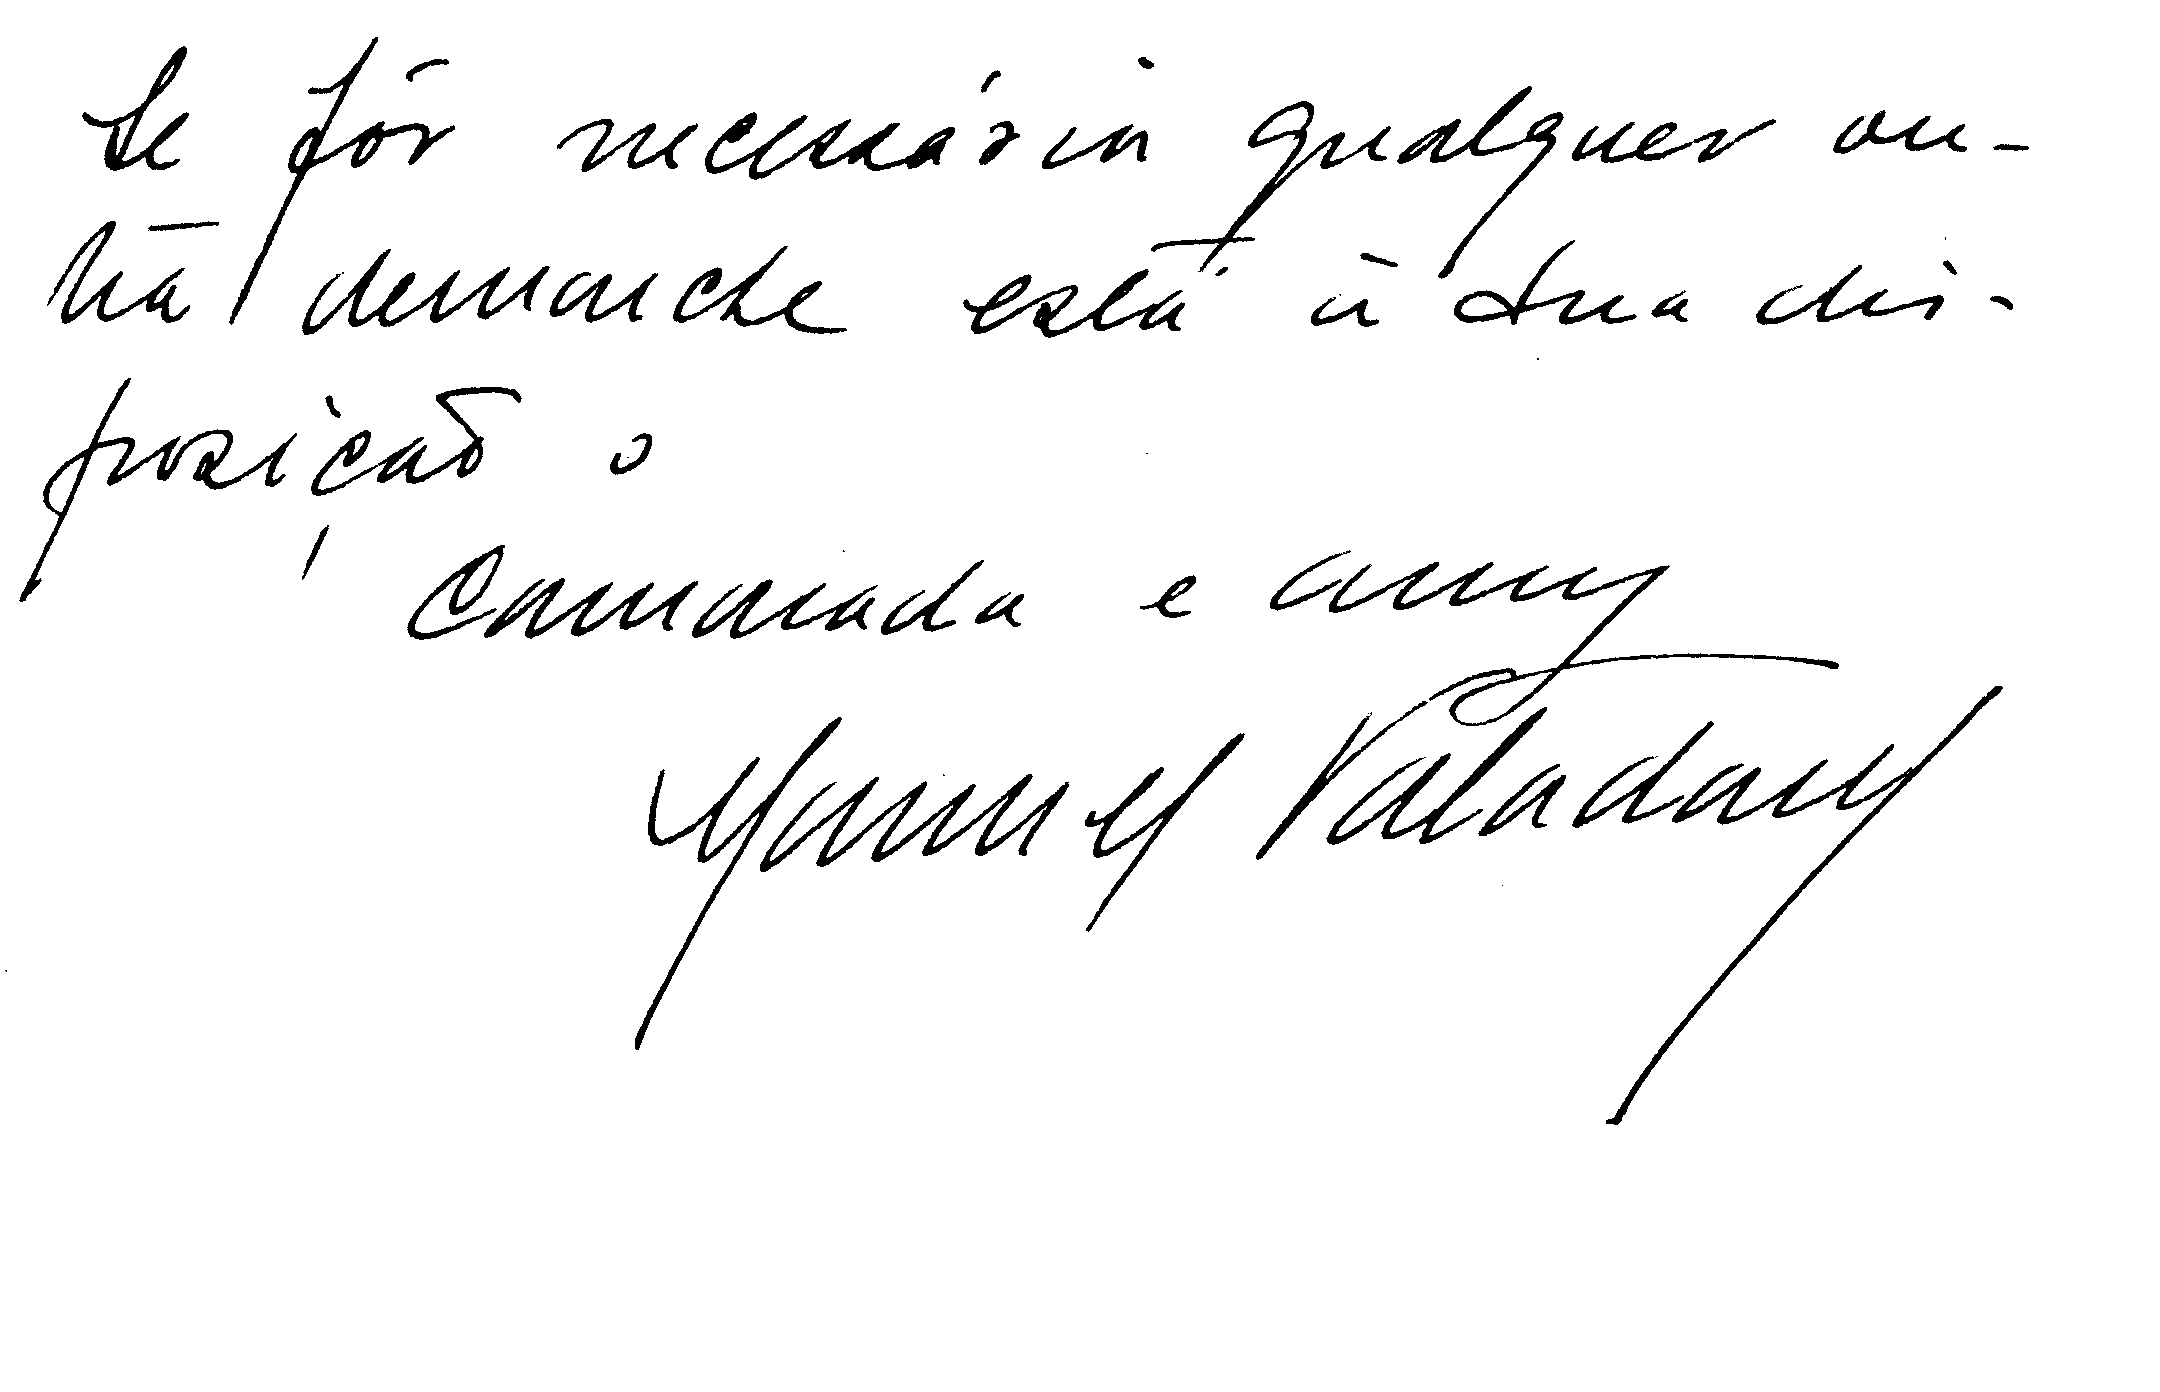 Se fôr necessário qualquer ou-
tra demarche está à sua dis-
posição o
Camarada e amg
Manuel Valadares